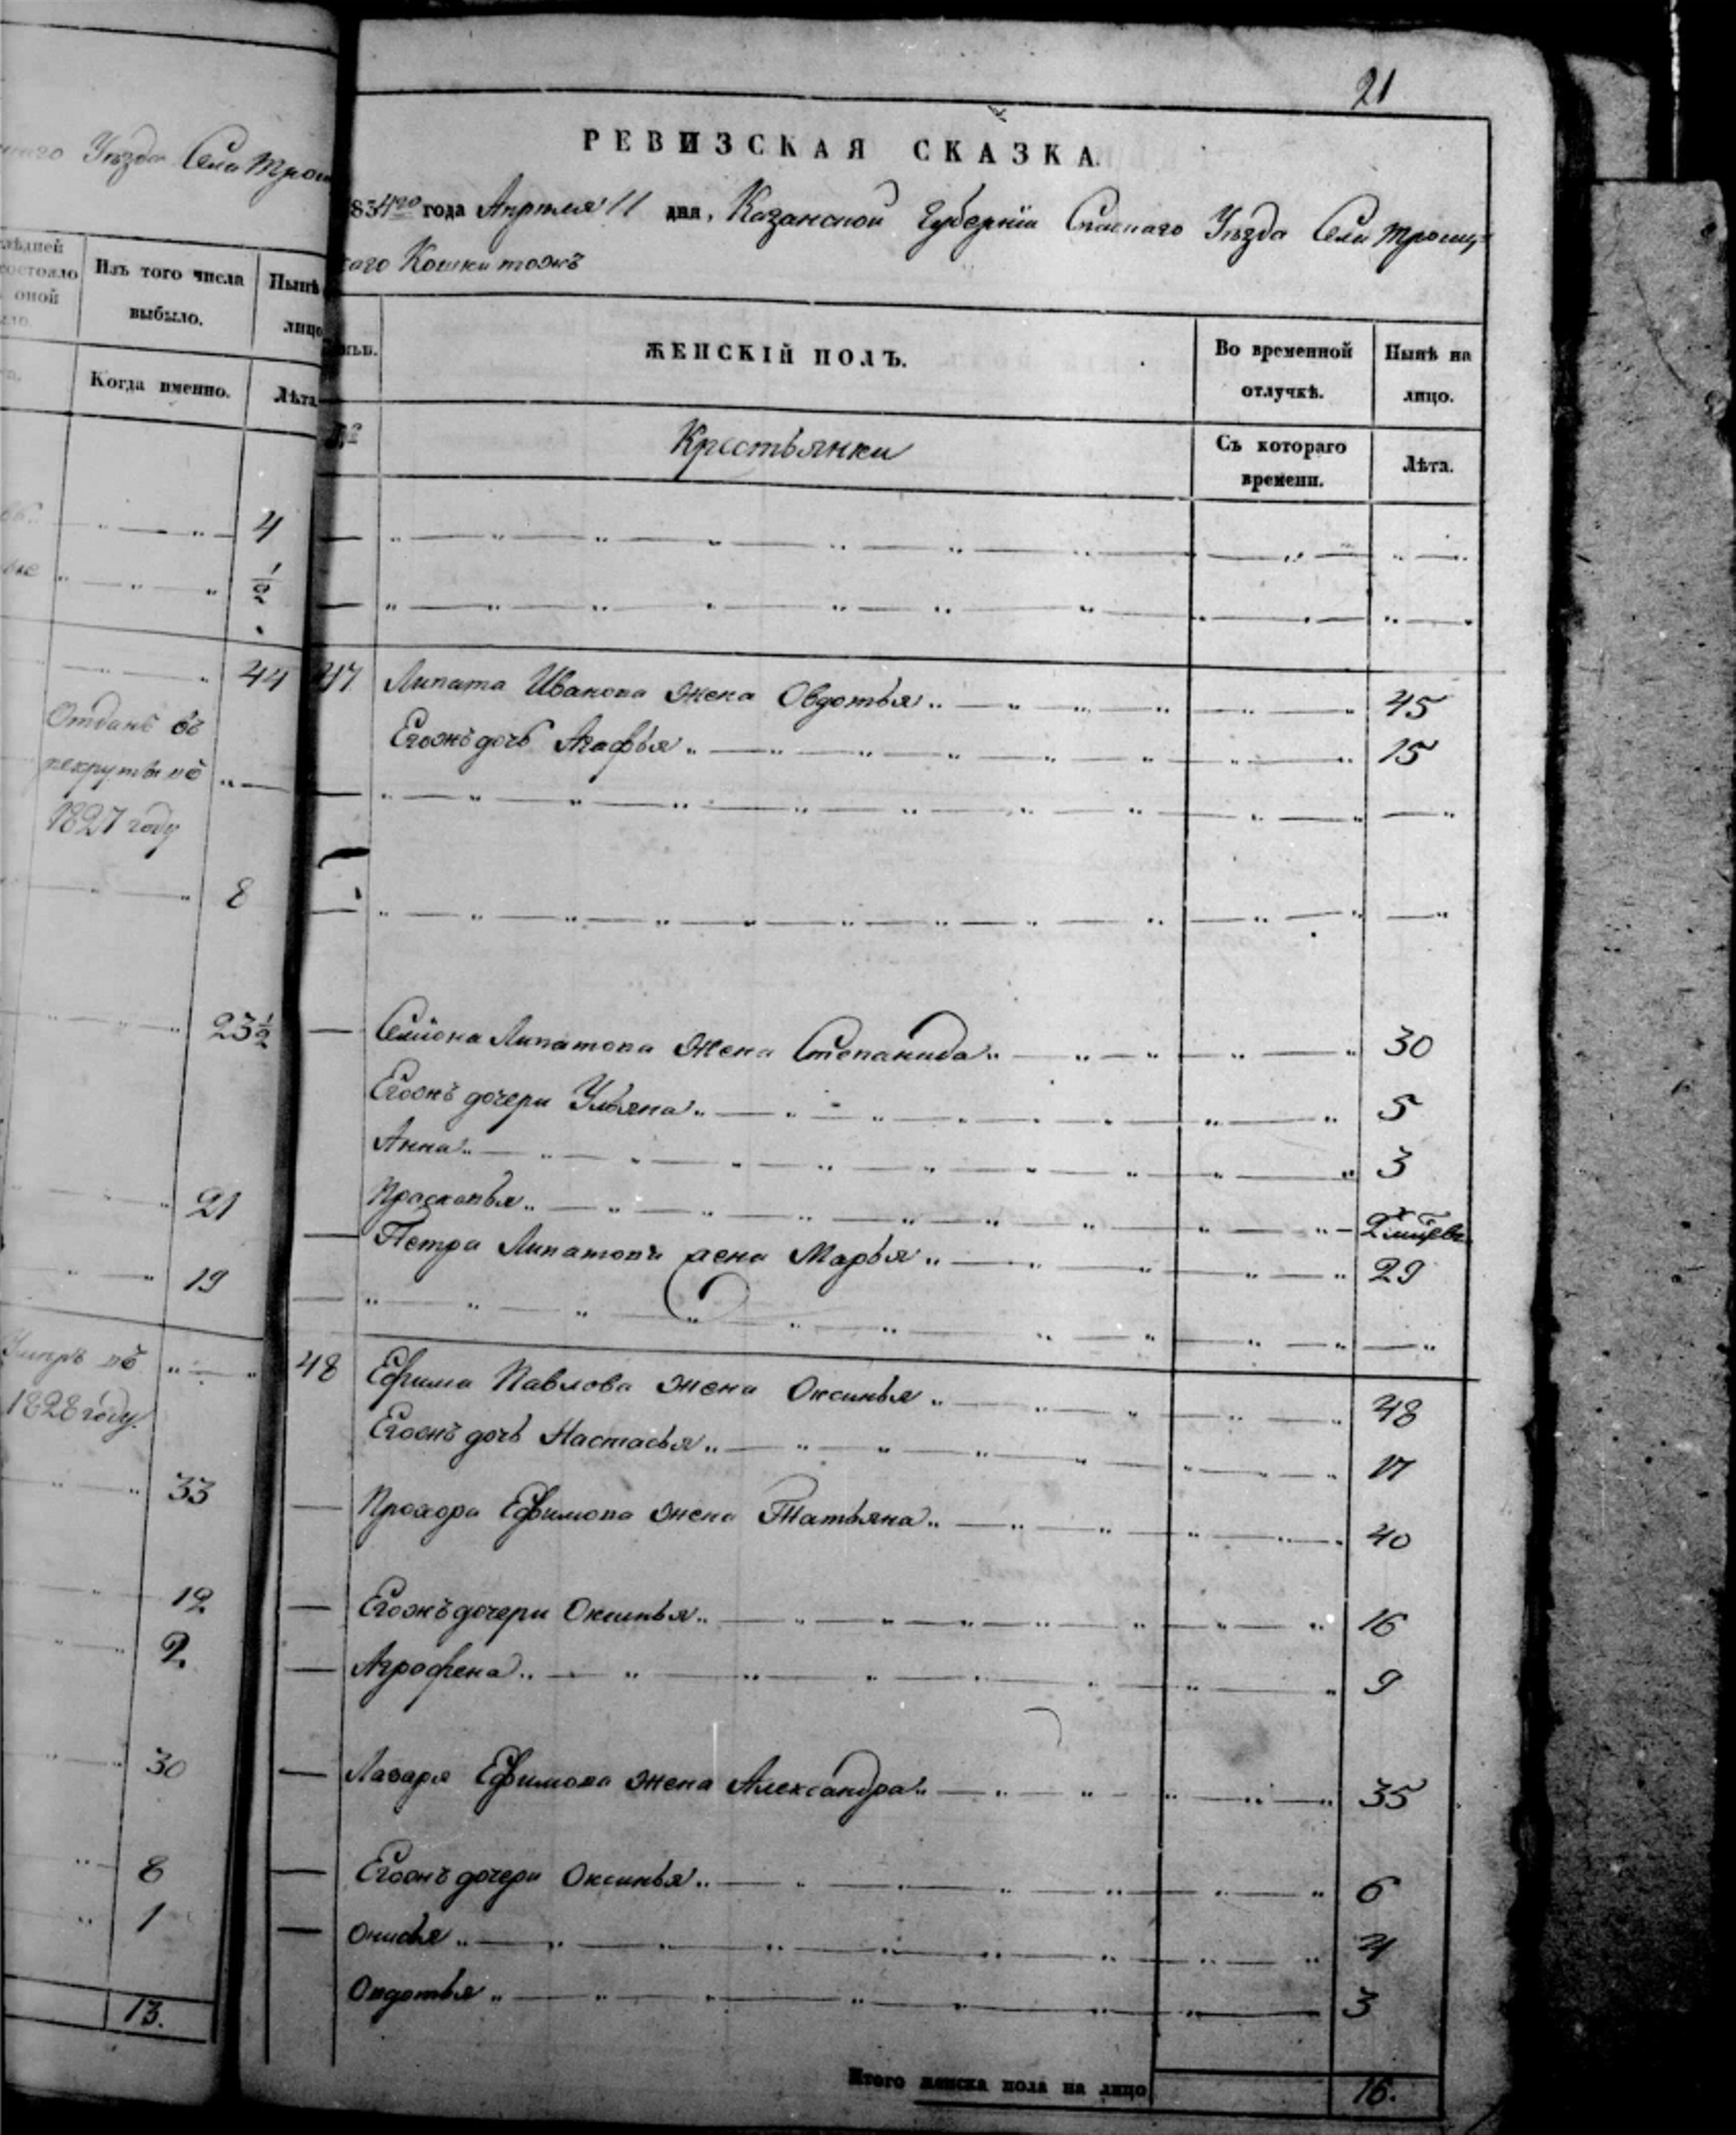 21
Уѣзда Села Трои
Изъ того числа
выбыло.
Когда именно.
Лѣта
4
1/2
44
Отданъ въ
рекруты въ
1827 году
8
23 1/2
21
19
Умръ въ
1828 году.
33
12
2.
30
8
1
13.
РЕВИЗСКАЯ СКАЗКА.
834го года Апрѣля 11 дня, Казанской Губерніи Спаскаго Уѣзда Села Троиц=
каго Кошки тожъ
ЖЕНСКІЙ ПОЛЪ. Во временной отлучкѣ. Нынѣ на лицо.
Крестьянки Съ котораго времени. Лѣта.
47 Липата Иванова жена Овдотья 45
Егожъ дочь Агафья 15
Семіона Липатова жена Степанида 30
Егожъ дочери Ульяна 5
Анна 3
Прасковья 2
Петра Липатова жена Марья 29
48 Ефима Павлова жена Оксинья 48
Егожъ дочь Настасья 17
Прохора Ефимова жена Татьяна 40
Егожъ дочери Оксинья 16
Агрофена 9
Лазаря Ефимова жена Александра 35
Егожъ дочери Оксинья 6
Онисья 4
Овдотья 3
Итого женска пола на лицо 16.